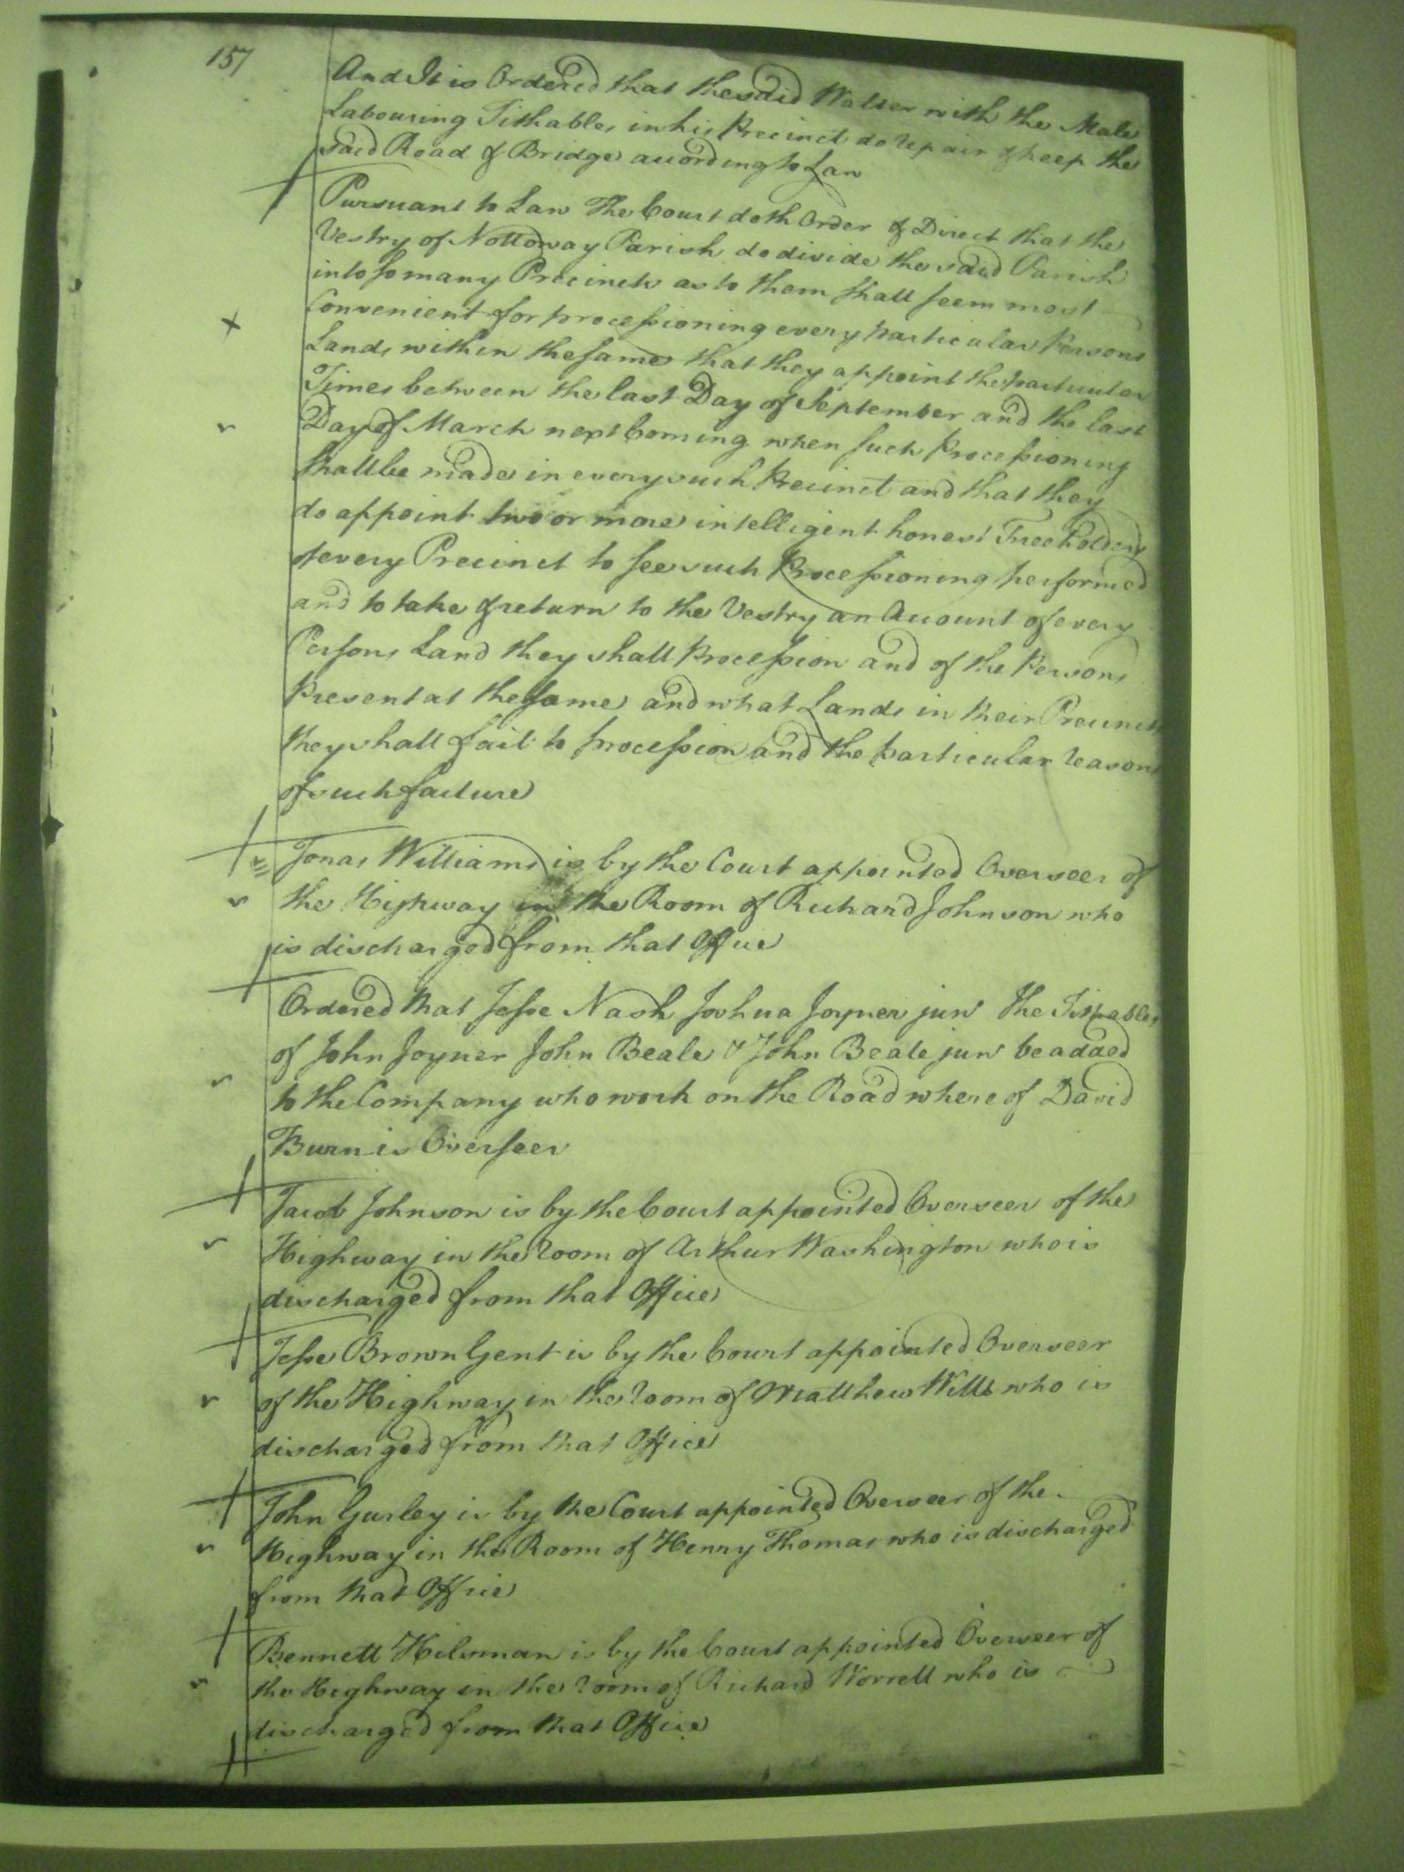 157
And It is Ordered that the said Walter with the Male
Labouring Tithables in his Precinct do repair & keep the
said Road & Bridge according to Law
Pursuant to Law The Court doth Order & Direct that the
Vestry of Nottoway Parish do divide the said Parish
into so many Precincts as to them shall seem most
Convenient for processioning every particular Persons
Lands within the same that they appoint the particular
Times between the last Day of September and the last
Day of March next Coming when such Processioning
shall be made in every such Precinct and that they
do appoint two or more intelligent honest Freeholders
of every Precinct to see such Processioning performed
and to take & return to the Vestry an Account of every
Persons Land they shall Procession and of the Persons
present at the same and what Lands in their Precincts
they shall fail to procession and the particular reasons
of such failure
Jonas Williams is by the Court appointed Overseer of
the Highway in the Room of Richard Johnson who
is discharged from that Office
Ordered that Jesse Nash Joshua Joyner junr The Tithables
of John Joyner John Beale & John Beale junr be added
to the Company who work on the Road where of David
Burn is Overseer
Jacob Johnson is by the Court appointed Overseer of the
Highway in the room of Arthur Washington who is
discharged from that Office
Jesse Brown Gent is by the Court appointed Overseer
of the Highway in the room of Matthew Wills who is
discharged from that Office
John Gurley is by the Court appointed Overseer of the
Highway in the Room of Henry Thomas who is discharged
from that Office
Bennett Hilsman is by the Court appointed Overseer of
the Highway in the room of Richard Worrell who is
discharged from that Office